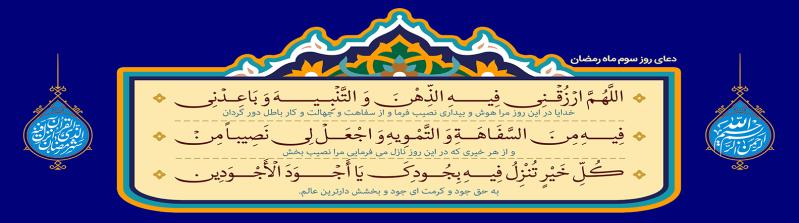 دعای روز سوم ماه رمضان
اللَّهُمَّ ارْزُقْنِی فِیهِ الذِّهْنَ وَ التَّنْبِیهَ وَ بَاعِدْنِی
خدایا در این روز مرا هوش و بیداری نصیب فرما و از سفاهت و جهالت و کار باطل دور گردان
فِیهِ مِنَ السَّفَاهَةِ وَ التَّمْوِیهِ وَ اجْعَلْ لِی نَصِیباً مِنْ
و از هر خیری که در این روز نازل می فرمایی مرا نصیب بخش
کُلِّ خَیْرٍ تُنْزِلُ فِیهِ بِجُودِکَ یَا أَجْوَدَ الْأَجْوَدِینَ
به حق جود و کرمت ای جود و بخشش دارترین عالم.